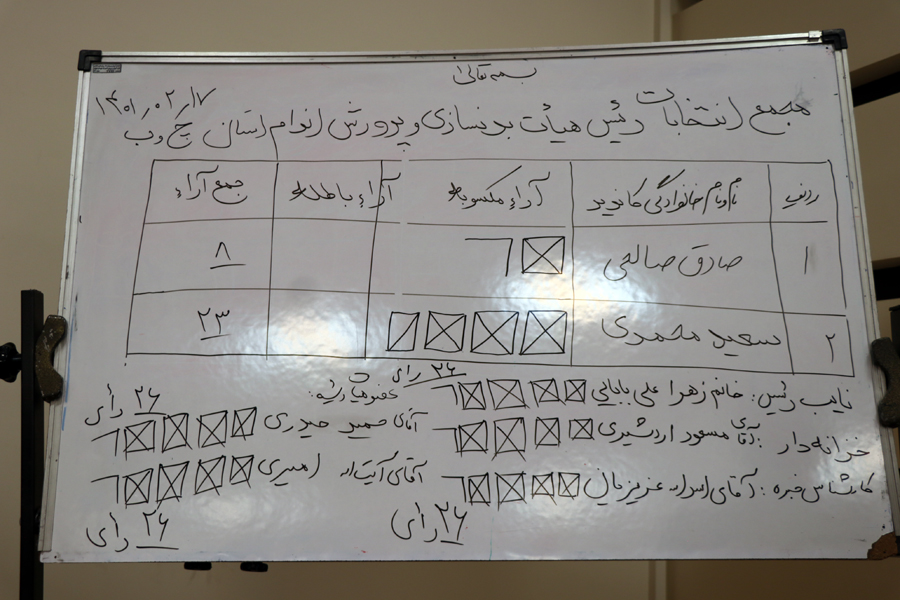 بسمه تعالی
۱۴۰۱/۰۲/۱۷
مجمع انتخابات رئیس هیأت بدنسازی و پرورش اندام استان
ردیف نام و نام خانوادگی کاندید آراء مکسوبه آراء باطله جمع آراء
۱ صادق صالحی ۸
۲ سعید محمدی ۲۳
نایب رئیس: خانم زهرا علی بابایی ۲۶ رأی
خزانه دار: آقای مسعود اردشیری
کارشناس خبره: آقای اسداله عزیزیان
۲۶ رأی
عضو هیأت رئیسه:
۲۶ رأی
آقای حمید حیدری
آقای آیت اله امیری
۲۶ رأی